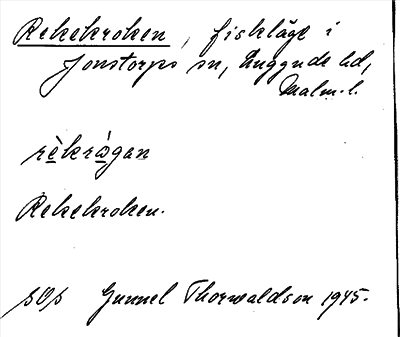 Rekekroken, fiskläge i
Jonstorps sn, Luggude hd,
Malm. l.
rèkrògan
Rekekroken.
Gunnel Thorwaldson 1945.